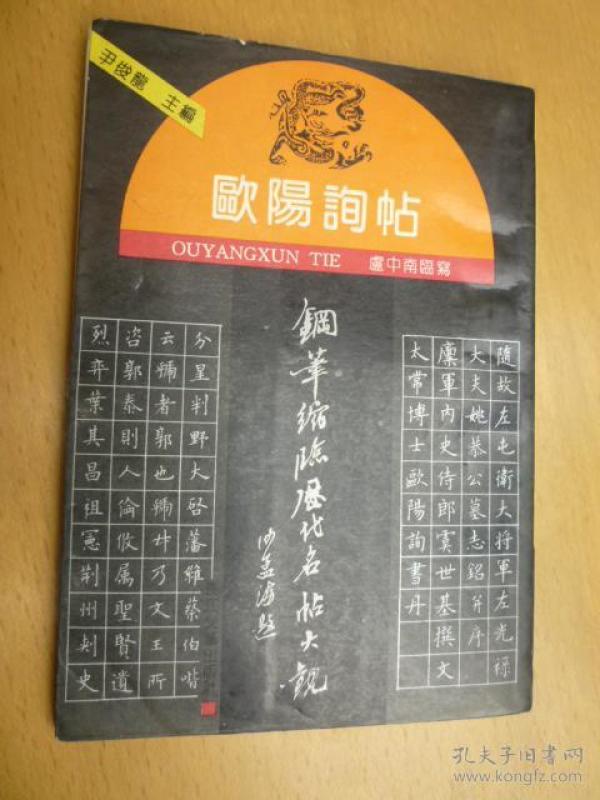 尹俊龍 主編
歐陽詢帖
OUYANGXUN TIE
盧中南臨寫
鋼筆縮臨歷代名帖大觀
沙孟海題
隨故左屯衛大將軍左光祿
大夫姚恭公墓志銘并序
内史侍郎虞世基撰文
太常博士歐陽詢書丹
分星判野大啓藩維蔡伯喈
云虢者郭也虢叔乃文王所
咨郭泰則人倫攸属聖賢遺
烈弈葉其昌祖憲荆州刺史
孔夫子旧书网
www.kongfz.com